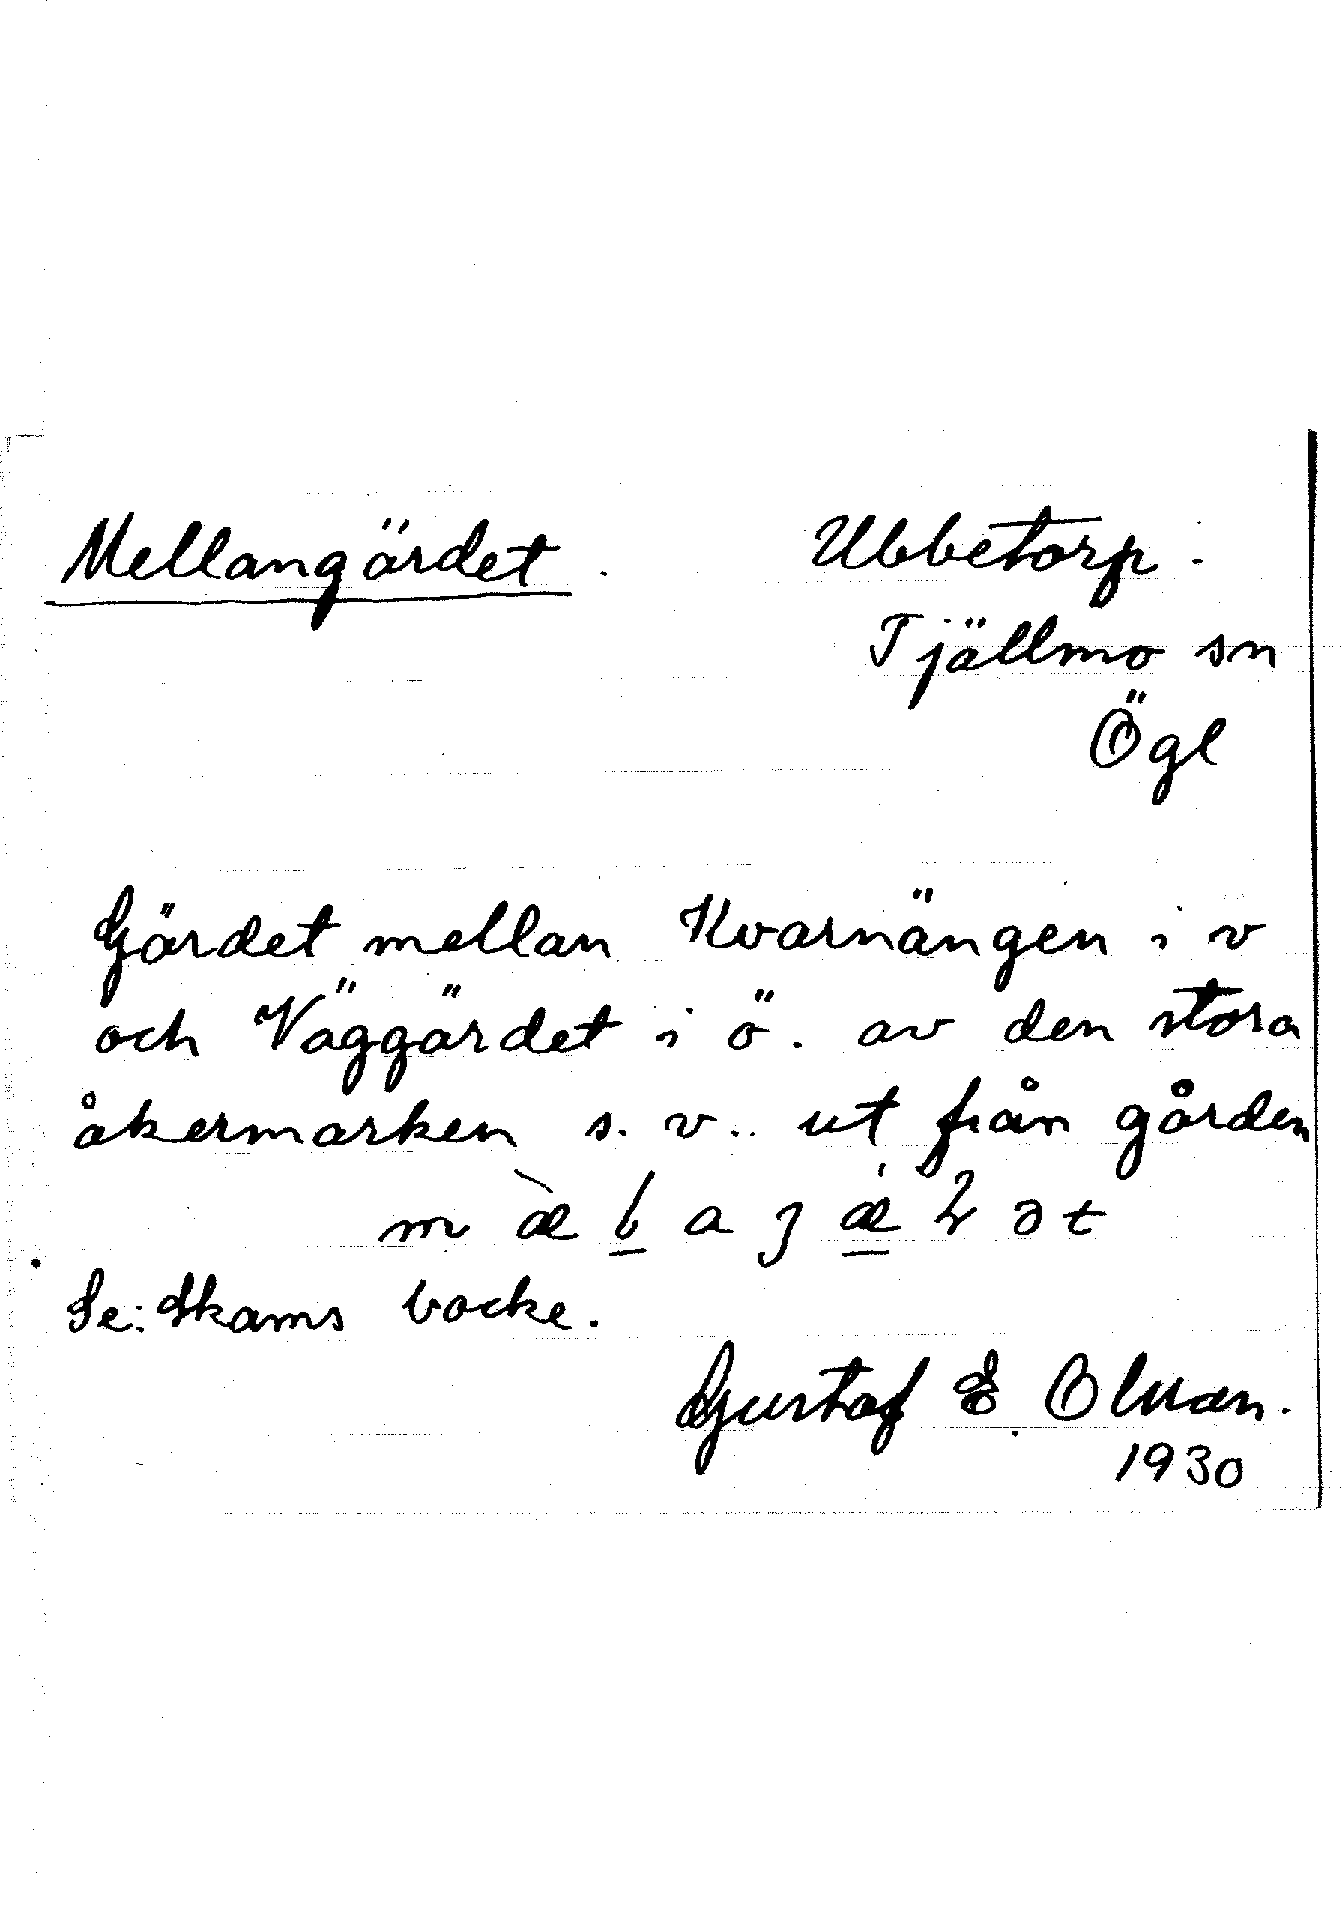 Mellangärdet. Ubbetorp.
Tjällmo sn
Ögl
Gärdet mellan Kvarnängen i v
och Väggärdet i ö. av den stora
åkermarken s. v.. ut från gården
Se: Skams bocke.
Gustaf E Olman.
1930